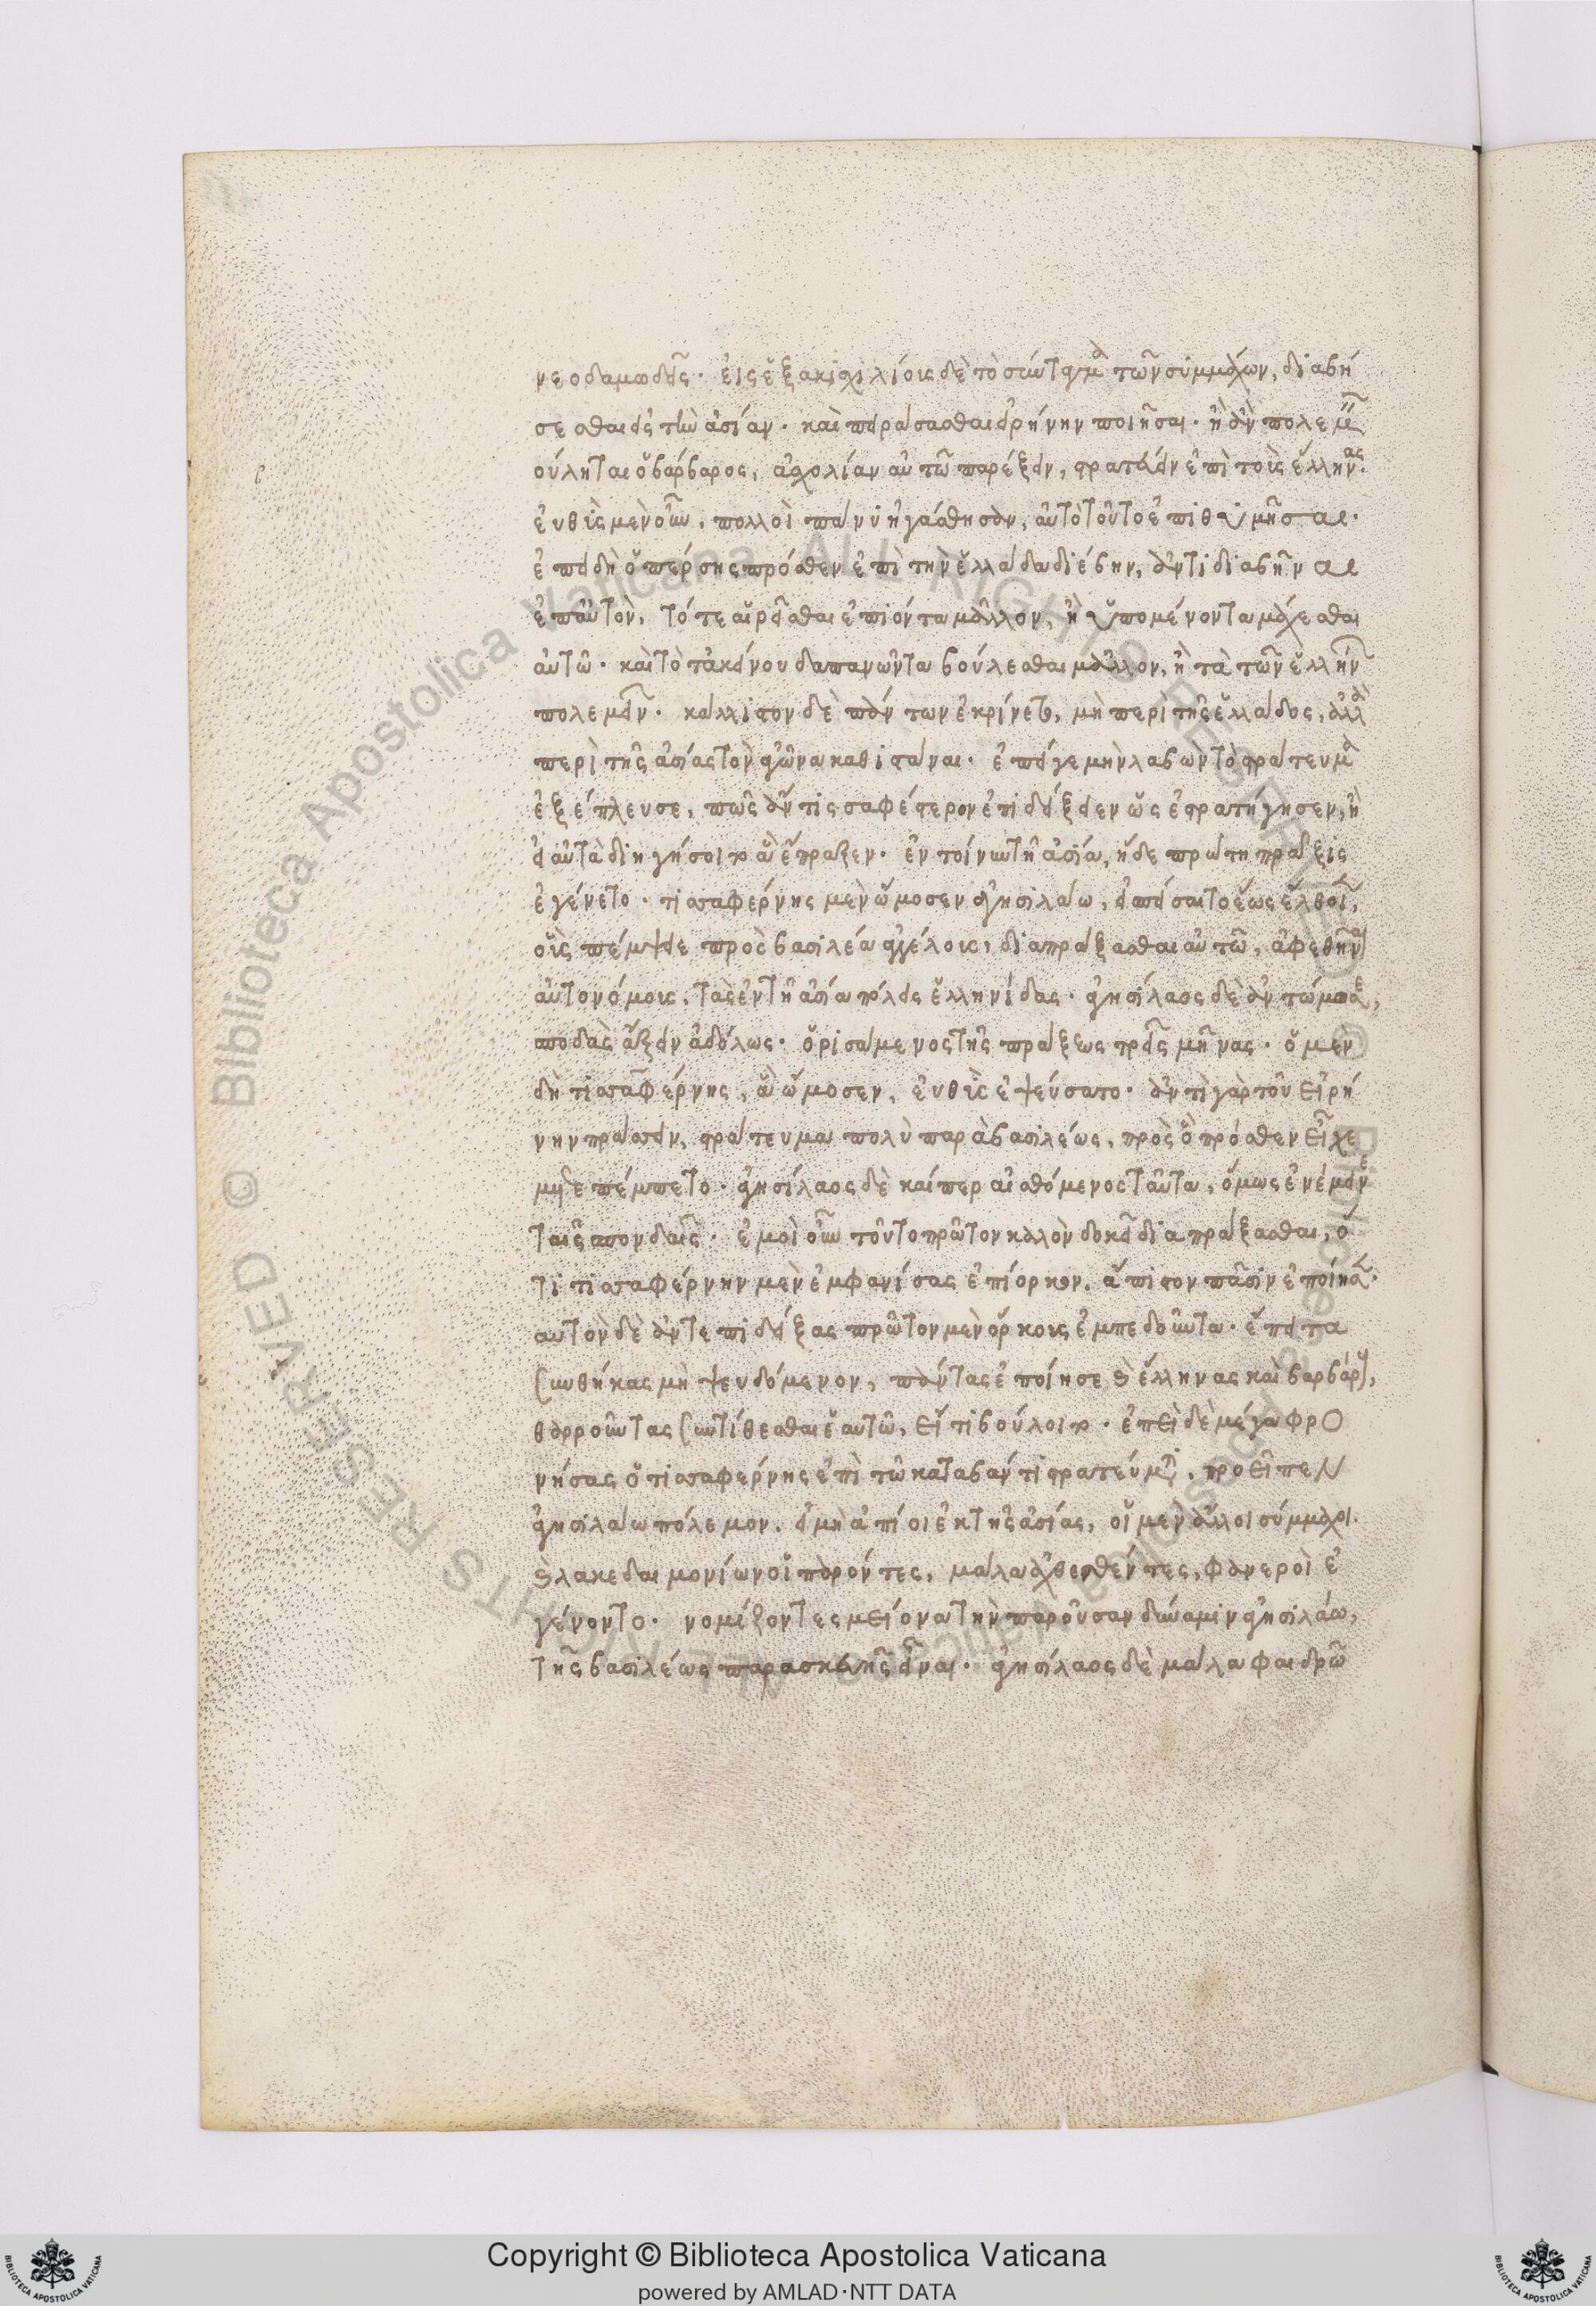 νεοδαμώδεις· εἰς ἑξακισχιλίους δὲ τὸ σύνταγμα τῶν συμμάχων, διαβή
σεσθαι εἰς τὴν ἀσίαν· καὶ πειράσασθαι εἰρήνην ποιῆσαι· ἢ ἂν πολεμεῖν
βούληται ὁ βάρβαρος, ἀσχολίαν αὐτῶ παρέξειν, στρατεύειν ἐπὶ τοὺς ἕλληνας·
εὐθὺς μὲν οὖν, πολλοὶ πάνυ ἠγάσθησαν, αὐτὸ τοῦτο ἐπιθυμῆσαι·
ἐπειδὴ ὁ πέρσης πρόσθεν ἐπὶ τὴν ἑλλάδα διέβην, ἀντιδιαβῆναι
ἐπ' αὐτὸν, τό τε αἱρεῖσθαι ἐπιόντα μᾶλλον, ἢ ὑπομένοντα μάχεσθαι
αὐτῶ· καὶ τὸ τἀκείνου δαπανῶντα βούλεσθαι μᾶλλον, ἢ τὰ τῶν ἑλλήνων
πολεμεῖν· κάλλιστον δὲ πάντων ἐκρίνετο, μὴ περὶ τῆς ἑλλάδος, ἀλλὰ
περὶ τῆς ἀσίας τὸν ἀγῶνα καθιστάναι· ἐπεί γε μὴν λαβὼν τὸ στράτευμα
ἐξέπλευσε, πῶς ἄν τις σαφέστερον ἐπιδείξειεν ὡς ἐστρατήγησεν, ἢ
εἰ αὐτὰ διηγήσοιτο ἃ ἔπραξεν· ἐν τοίνυν τῆ ἀσία, ἥδε πρώτη πράξις
ἐγένετο· τισσαφέρνης μὲν ὤμοσεν ἀγησιλάω, εἰ σπείσαιτο ἕως ἔλθοιεν,
οὓς πέμψειε πρὸς βασιλέα ἀγγέλους, διαπράξασθαι αὐτῶ, ἀφεθῆναι
αὐτονόμους, τὰς ἐν τῆ ἀσία πόλεις ἑλληνίδας· ἀγησίλαος δὲ ἀντώμοσε,
σπονδὰς ἄξειν ἀδόλως· ὁρισάμενος τῆς πράξεως τρεῖς μῆνας· ὁ μὲν
δὴ τισσαφέρνης, ἃ ὤμοσεν, εὐθὺς ἐψεύσατο· ἀντὶ γὰρ τοῦ εἰρή
νην πράσσειν, στράτευμα πολὺ παρὰ βασιλέως, πρὸς ὃ πρόσθεν εἶχε
μετεπέμπετο· ἀγησίλαος δὲ καίπερ αἰσθόμενος ταῦτα, ὅμως ἐνέμεινε
ταῖς σπονδαῖς· ἐμοὶ οὖν τοῦτο πρῶτον καλὸν δοκεῖ διαπράξασθαι, ὅ
τι τισσαφέρνην μὲν ἐμφανίσας ἐπίορκον, ἄπιστον πᾶσιν ἐποίησεν·
αυτὸν δὲ ἀντεπιδείξας πρῶτον μὲν ὅρκους ἐμπεδοῦντα· ἔπειτα
συνθήκας μὴ ψευδόμενον, πάντας ἐποίησε καὶ ἕλληνας καὶ βαρβάρους,
θαρροῦντας συντίθεσθαι ἑαυτῶ, εἴ τι βούλοιτο· ἐπεὶ δὲ μέγα φρο
νήσας ὁ τισσαφέρνης ἐπὶ τῶ καταβάντι στρατεύματι, προεῖπεν
ἀγησιλάω πόλεμον, εἰ μὴ ἀπίοι ἐκ τῆς ἀσίας, οἱ μὲν ἄλλοι σύμμαχοι
καὶ λακεδαιμονίων οἱ παρόντες, μάλα ἀχθεσθέντες, φανεροὶ ἐ
γένοντο· νομίζοντες μείονα τὴν παροῦσαν δύναμιν ἀγησιλάω,
τῆς βασιλέως παρασκευῆς εἶναι· ἀγησίλαος δὲ μάλα φαιδρῶ
Copyright © Biblioteca Apostolica Vaticana
powered by AMLAD·NTT DATA